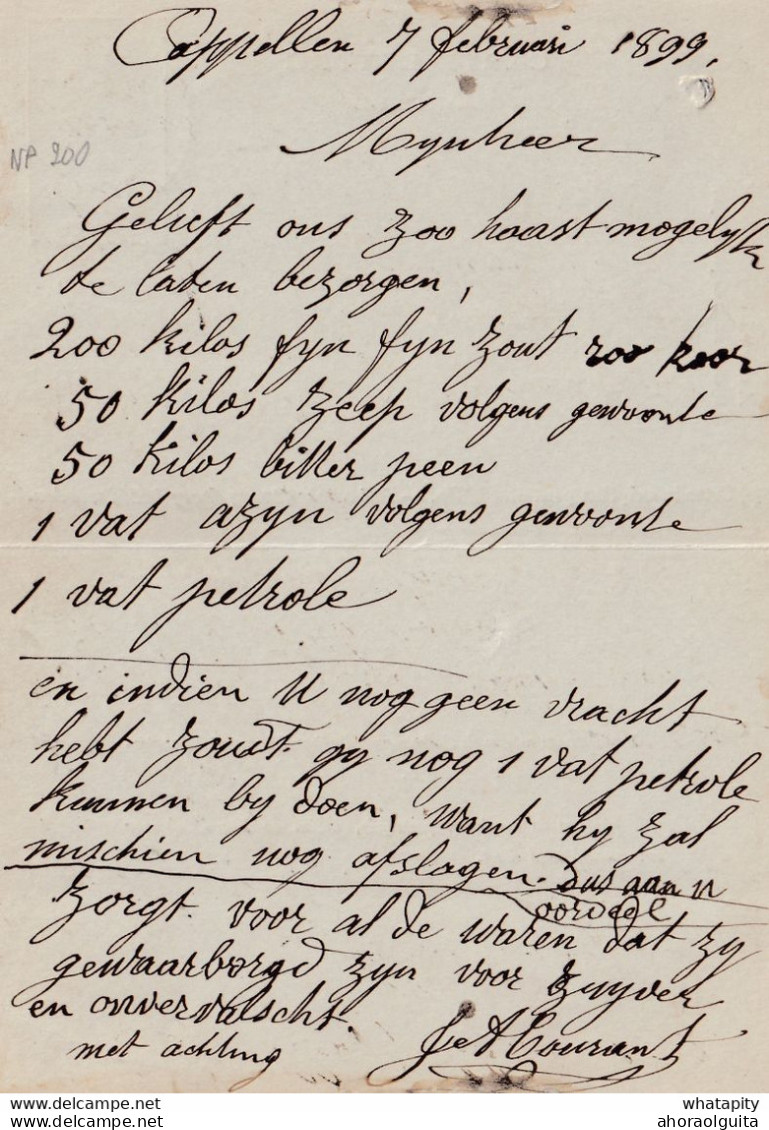 Cappellen 7 februari 1899,
NP 200
Mynheer
Gelieft ons zoo haast mogelyk
te laten bezorgen,
200 kilos fyn fyn zout
50 kilos zeep volgens gewoonte
50 kilos bitter peen
1 vat azyn volgens gewoonte
1 vat petrole
en indien U nog geen vracht
hebt zoudt gy nog 1 vat petrole
kunnen by doen, want hy zal
mischien nog afslagen. dus aan u
oordeel
zorgt voor al de waren dat zy
gewaarborgd zyn voor zuyver
en onvervalscht.
met achting
Courant
whatapity
ahoraolguita